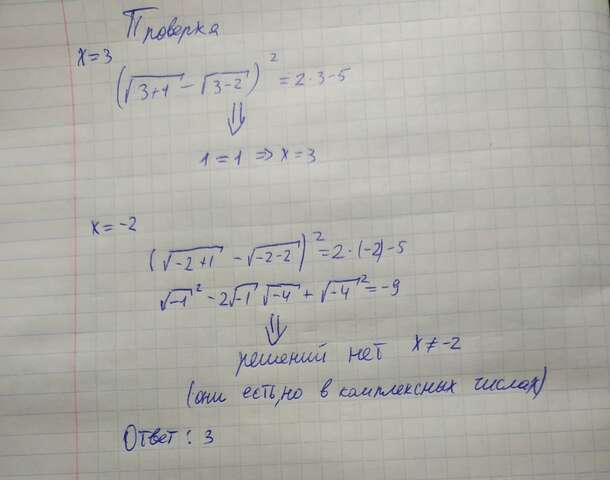 Проверка
x=3
(√(3+1) - √(3-2))² = 2·3-5
⇓
1=1 ⇒ x=3
x=-2
(√(-2+1) - √(-2-2))² = 2·(-2)-5
√(-1)² - 2√(-1) √(-4) + √(-4)² = -9
⇓
решений нет x≠-2
(они есть, но в комплексных числах)
Ответ: 3